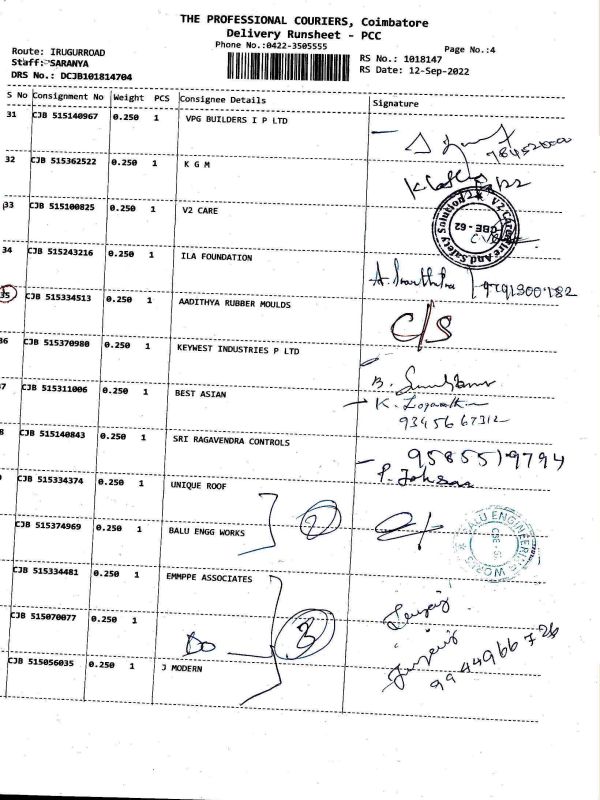 THE PROFESSIONAL COURIERS, Coimbatore
Delivery Runsheet - PCC
Phone No.:0422-3505555
Page No.:4
Route: IRUGURROAD
Staff: SARANYA
DRS No.: DCJB101814704
RS No.: 1018147
RS Date: 12-Sep-2022
S No Consignment No Weight PCS Consignee Details Signature
31 CJB 515140967 0.250 1 VPG BUILDERS I P LTD
32 CJB 515362522 0.250 1 K G M
33 CJB 515100825 0.250 1 V2 CARE
V2 Care Fire And Safety Solution
CBE - 62
34 CJB 515243216 0.250 1 ILA FOUNDATION
9791300182
35 CJB 515334513 0.250 1 AADITHYA RUBBER MOULDS
C/S
36 CJB 515370980 0.250 1 KEYWEST INDUSTRIES P LTD
7 CJB 515311006 0.250 1 BEST ASIAN
B.
K.
9345667312
8 CJB 515140843 0.250 1 SRI RAGAVENDRA CONTROLS
9585519794
CJB 515334374 0.250 1 UNIQUE ROOF
2
CJB 515374969 0.250 1 BALU ENGG WORKS
BALU ENGINEERING WORKS
CJB 515334481 0.250 1 EMMPPE ASSOCIATES
CJB 515070077 0.250 1
Do
3
CJB 515056035 0.250 1 J MODERN
9944966726